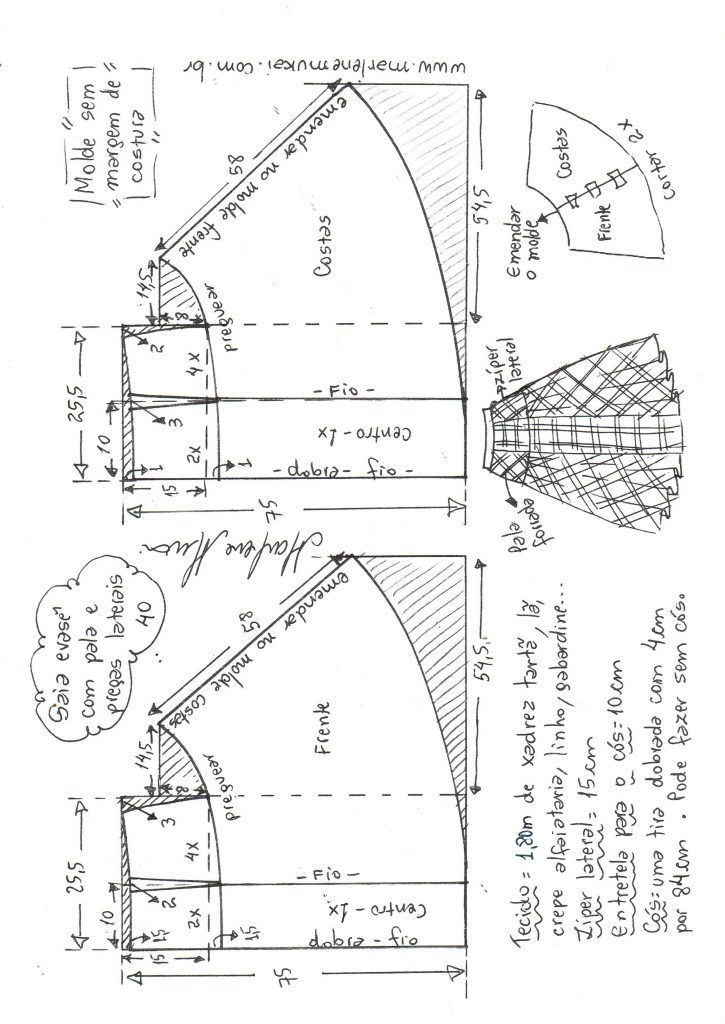 "Molde sem
margem de
costura"
www.marlenemukai.com.br
25,5
10
14,5
58
emendar no molde frente
8
2
3
1
4x
2x
15
1
preguear
Costas
- Fio -
Centro - 1x
- dobra - fio -
75
54,5
Costas
Frente
Emendar
o molde
Cortar 2x
zíper
lateral
pala
forrada
Saia evasê
com pala e
pregas laterais
40
Marlene Mukai
25,5
10
14,5
58
emendar no molde
costas
8
3
2
1,5
4x
2x
15
1,5
preguear
Frente
- Fio -
Centro - 1x
dobra - fio
75
54,5
Tecido = 1,80m de xadrez tartã, lã,
crepe alfaiataria, linho, gabardine...
Zíper lateral = 15 cm
Entretela para o cós = 10 cm
Cós: uma tira dobrada com 4 cm
por 84 cm. Pode fazer sem cós.